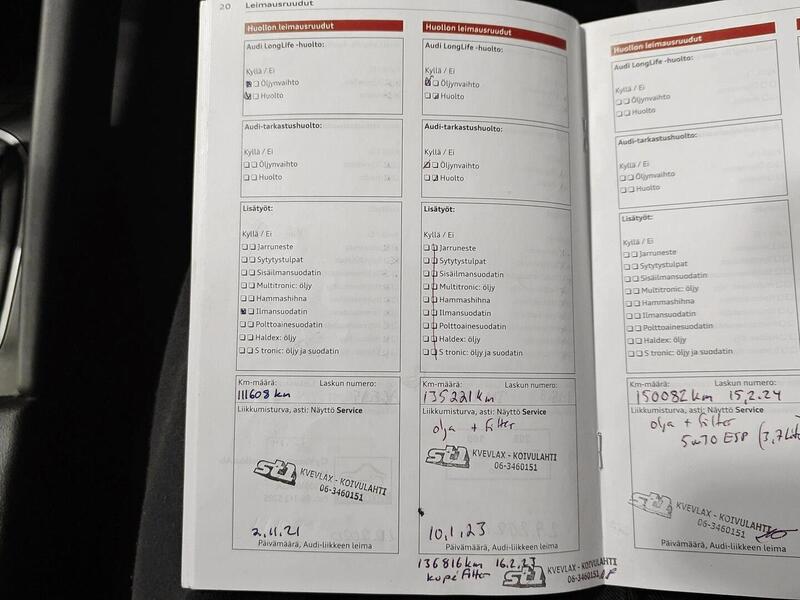 20 Leimausruudut
Huollon leimausruudut
Audi LongLife -huolto:
Kyllä / Ei
Öljynvaihto
Huolto
Audi-tarkastushuolto:
Kyllä / Ei
Öljynvaihto
Huolto
Lisätyöt:
Kyllä / Ei
Jarruneste
Sytytystulpat
Sisäilmansuodatin
Multitronic: öljy
Hammashihna
Ilmansuodatin
Polttoainesuodatin
Haldex: öljy
S tronic: öljy ja suodatin
Km-määrä: Laskun numero:
111608 km
Liikkumisturva, asti: Näyttö Service
st1 KVEVLAX - KOIVULAHTI
06-3460151
2.11.21
Päivämäärä, Audi-liikkeen leima
Huollon leimausruudut
Audi LongLife -huolto:
Kyllä / Ei
Öljynvaihto
Huolto
Audi-tarkastushuolto:
Kyllä / Ei
Öljynvaihto
Huolto
Lisätyöt:
Kyllä / Ei
Jarruneste
Sytytystulpat
Sisäilmansuodatin
Multitronic: öljy
Hammashihna
Ilmansuodatin
Polttoainesuodatin
Haldex: öljy
S tronic: öljy ja suodatin
Km-määrä: Laskun numero:
135221 km
Liikkumisturva, asti: Näyttö Service
olja + filter
st1 KVEVLAX - KOIVULAHTI
06-3460151
10.1.23
Päivämäärä, Audi-liikkeen leima
136816 km 16.2.23
kupé filter
st1 KVEVLAX - KOIVULAHTI
06-3460151
Huollon leimausruudut
Audi LongLife -huolto:
Kyllä / Ei
Öljynvaihto
Huolto
Audi-tarkastushuolto:
Kyllä / Ei
Öljynvaihto
Huolto
Lisätyöt:
Kyllä / Ei
Jarruneste
Sytytystulpat
Sisäilmansuodatin
Multitronic: öljy
Hammashihna
Ilmansuodatin
Polttoainesuodatin
Haldex: öljy
S tronic: öljy ja suodatin
Km-määrä: Laskun numero:
150082 km 15.2.24
Liikkumisturva, asti: Näyttö Service
olja + filter
5w30 ESP (3,7 Lit
st1 KVEVLAX - KOIVULAHTI
06-3460151
Päivämäärä, Audi-liikkeen leima